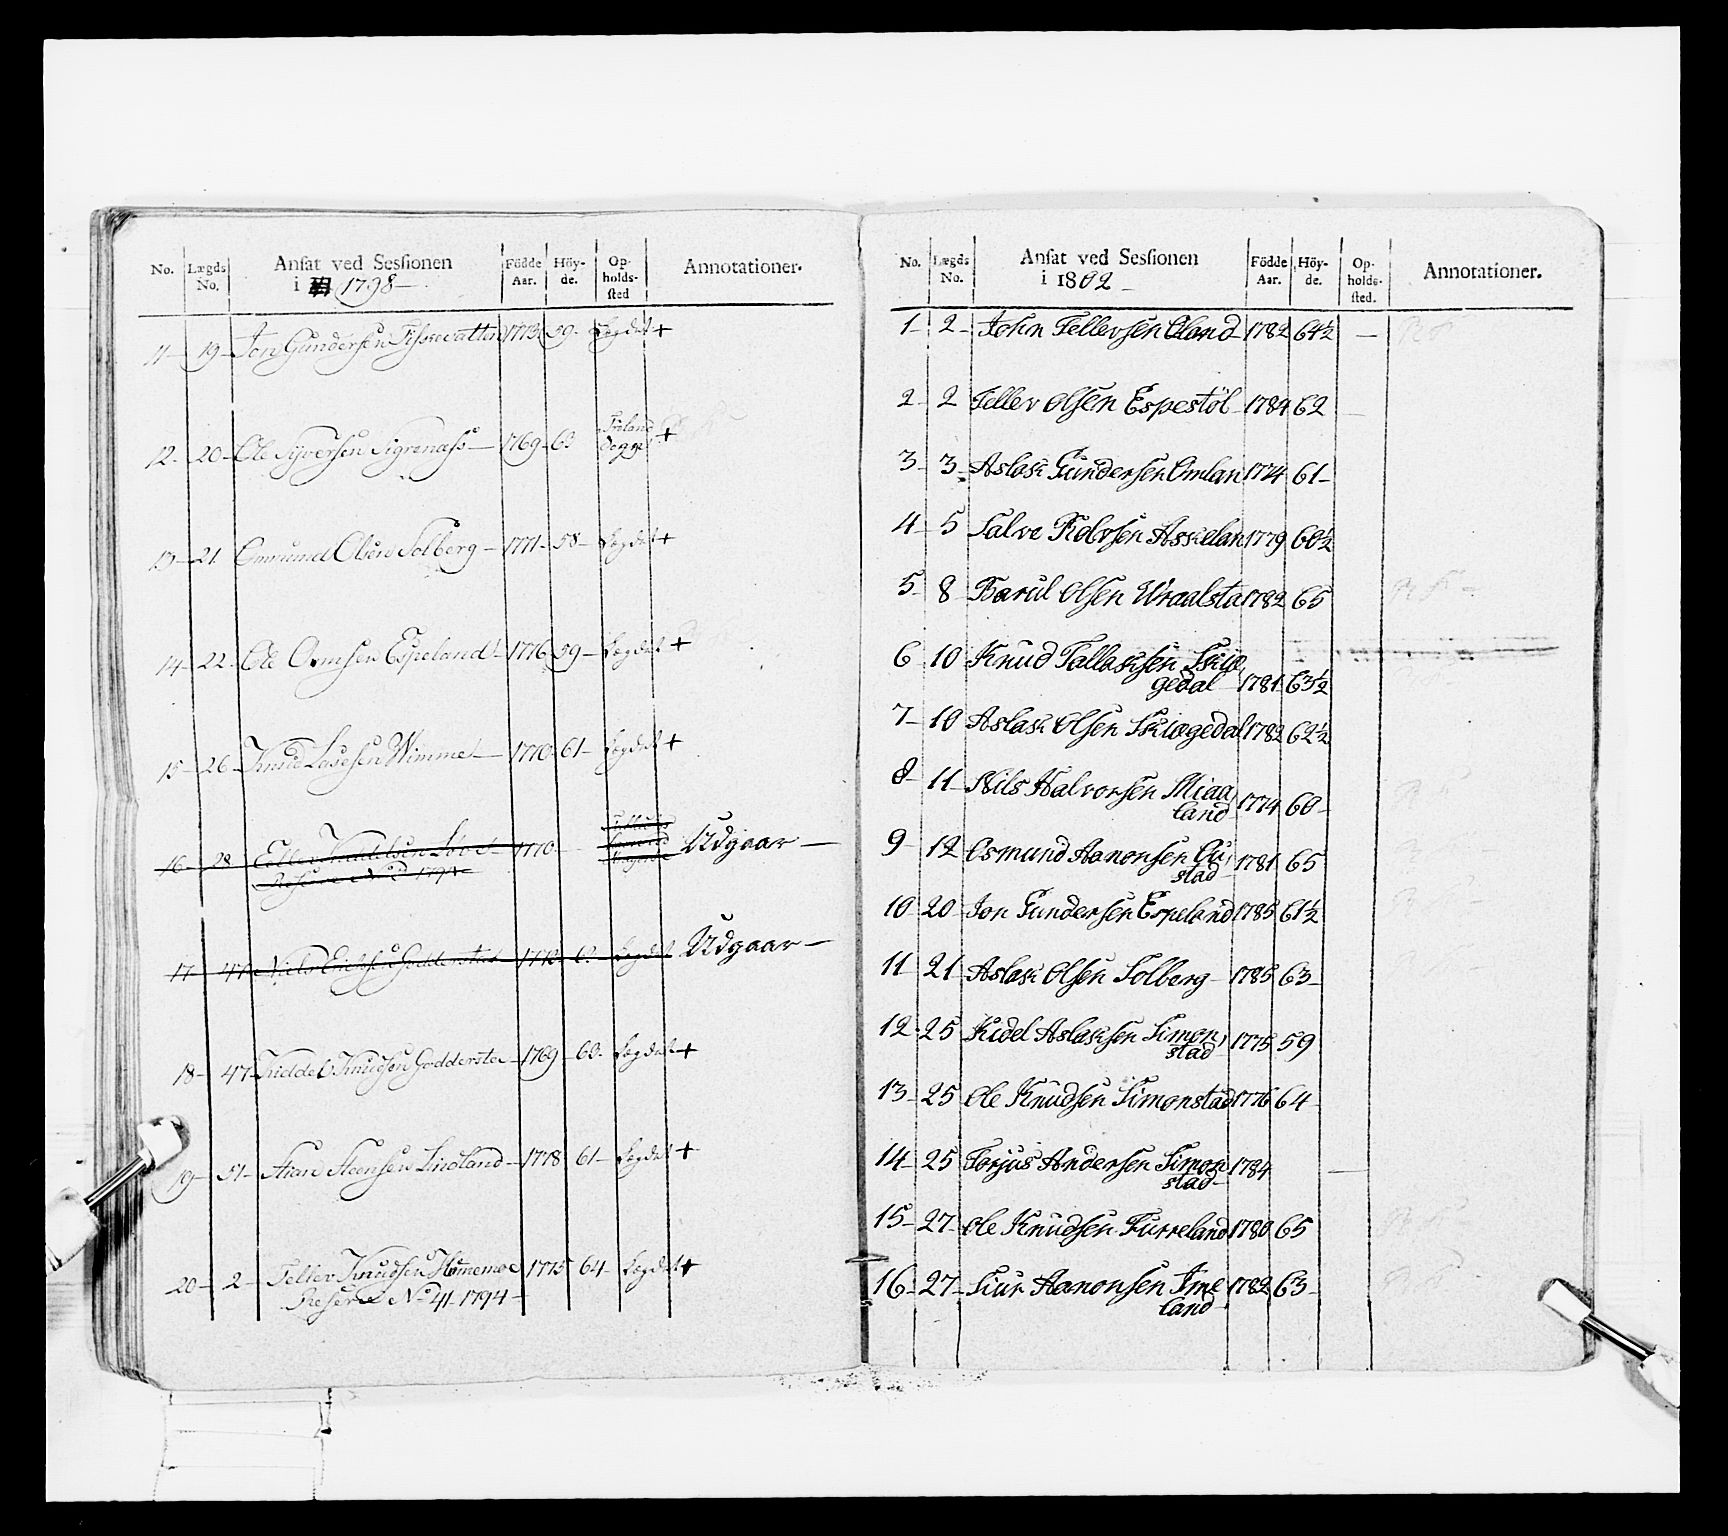 No. Lægds No. Ansat ved Sessionen i 1798 Födde Aar. Höyde. Opholdssted Annotationer.
11 - 19 - Jon Gundersen 1773 59 - Lægdet +
12 - 20 - Ole Syversen Sigrenæss - 1769 - 63 +
13 - 21 Omund Olsen Solberg - 1771 - 58 - Lægdet +
14 - 22 - Ole Ormsen Espeland - 1776 59 - Lægdet +
15 - 26 - Knud Wimme - 1770 61 - Lægdet +
16 - 28 1770 - Udgaar -
17 - 47 Lægdet Udgaar -
18 - 47 - Kiddel Knudsen Godderste - 1769 - 60 - Lægdet +
19 - 51 - Steensen Lindland - 1778 61 - Lægdet +
20 - 2 - Tellev Knudsen 1775 64 - Lægdet +
Reserve No 41 1794 -
No. Lægds No. Ansat ved Sessionen i 1802 - Födde Aar. Höyde. Opholdssted. Annotationer.
1 - 2 - John Tellevsen 1782 64½ -
2 - 2 Tellev Olsen Espestöl - 1784 62
3 - 3 - Aslak Gundersen Omlan 1774 61 -
4 - 5 Salve Rolvsen Asselan 1779 60½
5 - 8 Olsen Uraalsta 1782 65
6 10 Knud Tallaksen Skiæ,
gedal - 1781 63½
7 - 10 Aslak Olsen Skiægedal 1782 62½
8 - 11 - Nils Halvorsen Miaa,
land 1774 60 -
9 - 12 Osmund Aanonsen
stad - 1781 65
10 - 20 - Jon Gundersen Espeland 1785 61½
11 21 Aslak Olsen Solberg - 1785 63 -
12 - 25 Kidel Aslaksen Simon,
stad 1775 59
13 - 25 Ole Knudsen Simonstad 1776 64
14 - 25 Torjus Andersen Simon
stad - 1784 -
15 - 27 - Ole Knudsen Furreland 1780 65
16 - 27 - Siur Aanonsen Ime
land - 1782 63 -